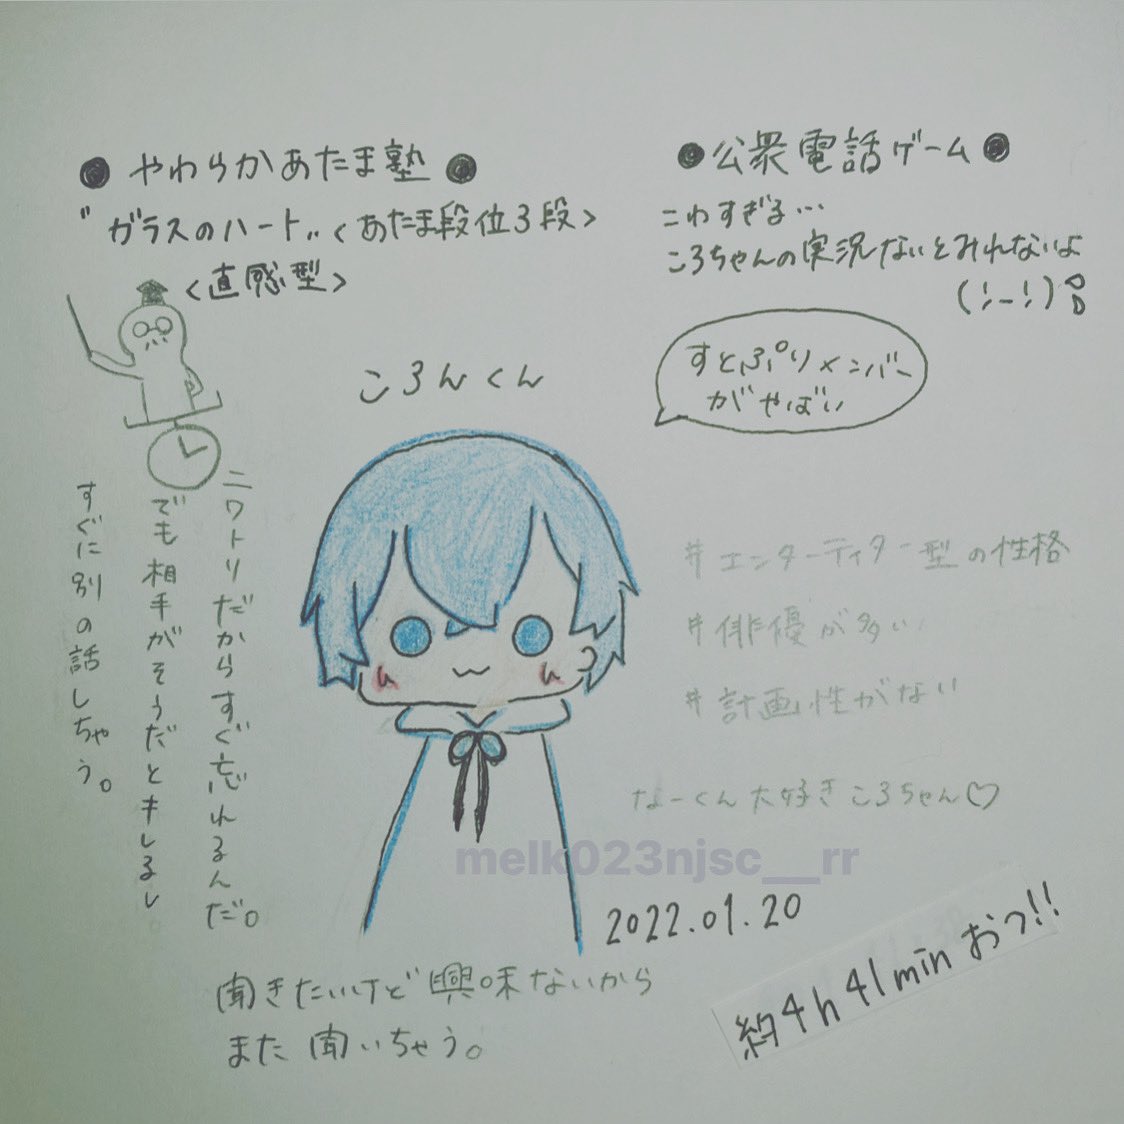 ●やわらかあたま塾●
"ガラスのハート"<あたま段位3段>
<直感型>
●公衆電話ゲーム●
こわすぎる…
ころちゃんの実況ないとみれないよ
(;-;)
すとぷりメンバー
がやばい
ころんくん
ニワトリだからすぐ忘れるんだ。
でも相手がそうだとキレるし
すぐに別の話しちゃう。
#エンターティター型の性格
#俳優が多い
#計画性がない
なーくん大好きころちゃん♡
melk023njsc__rr
2022.01.20
約4h41minおつ!!
聞きたいけど興味ないから
また聞いちゃう。